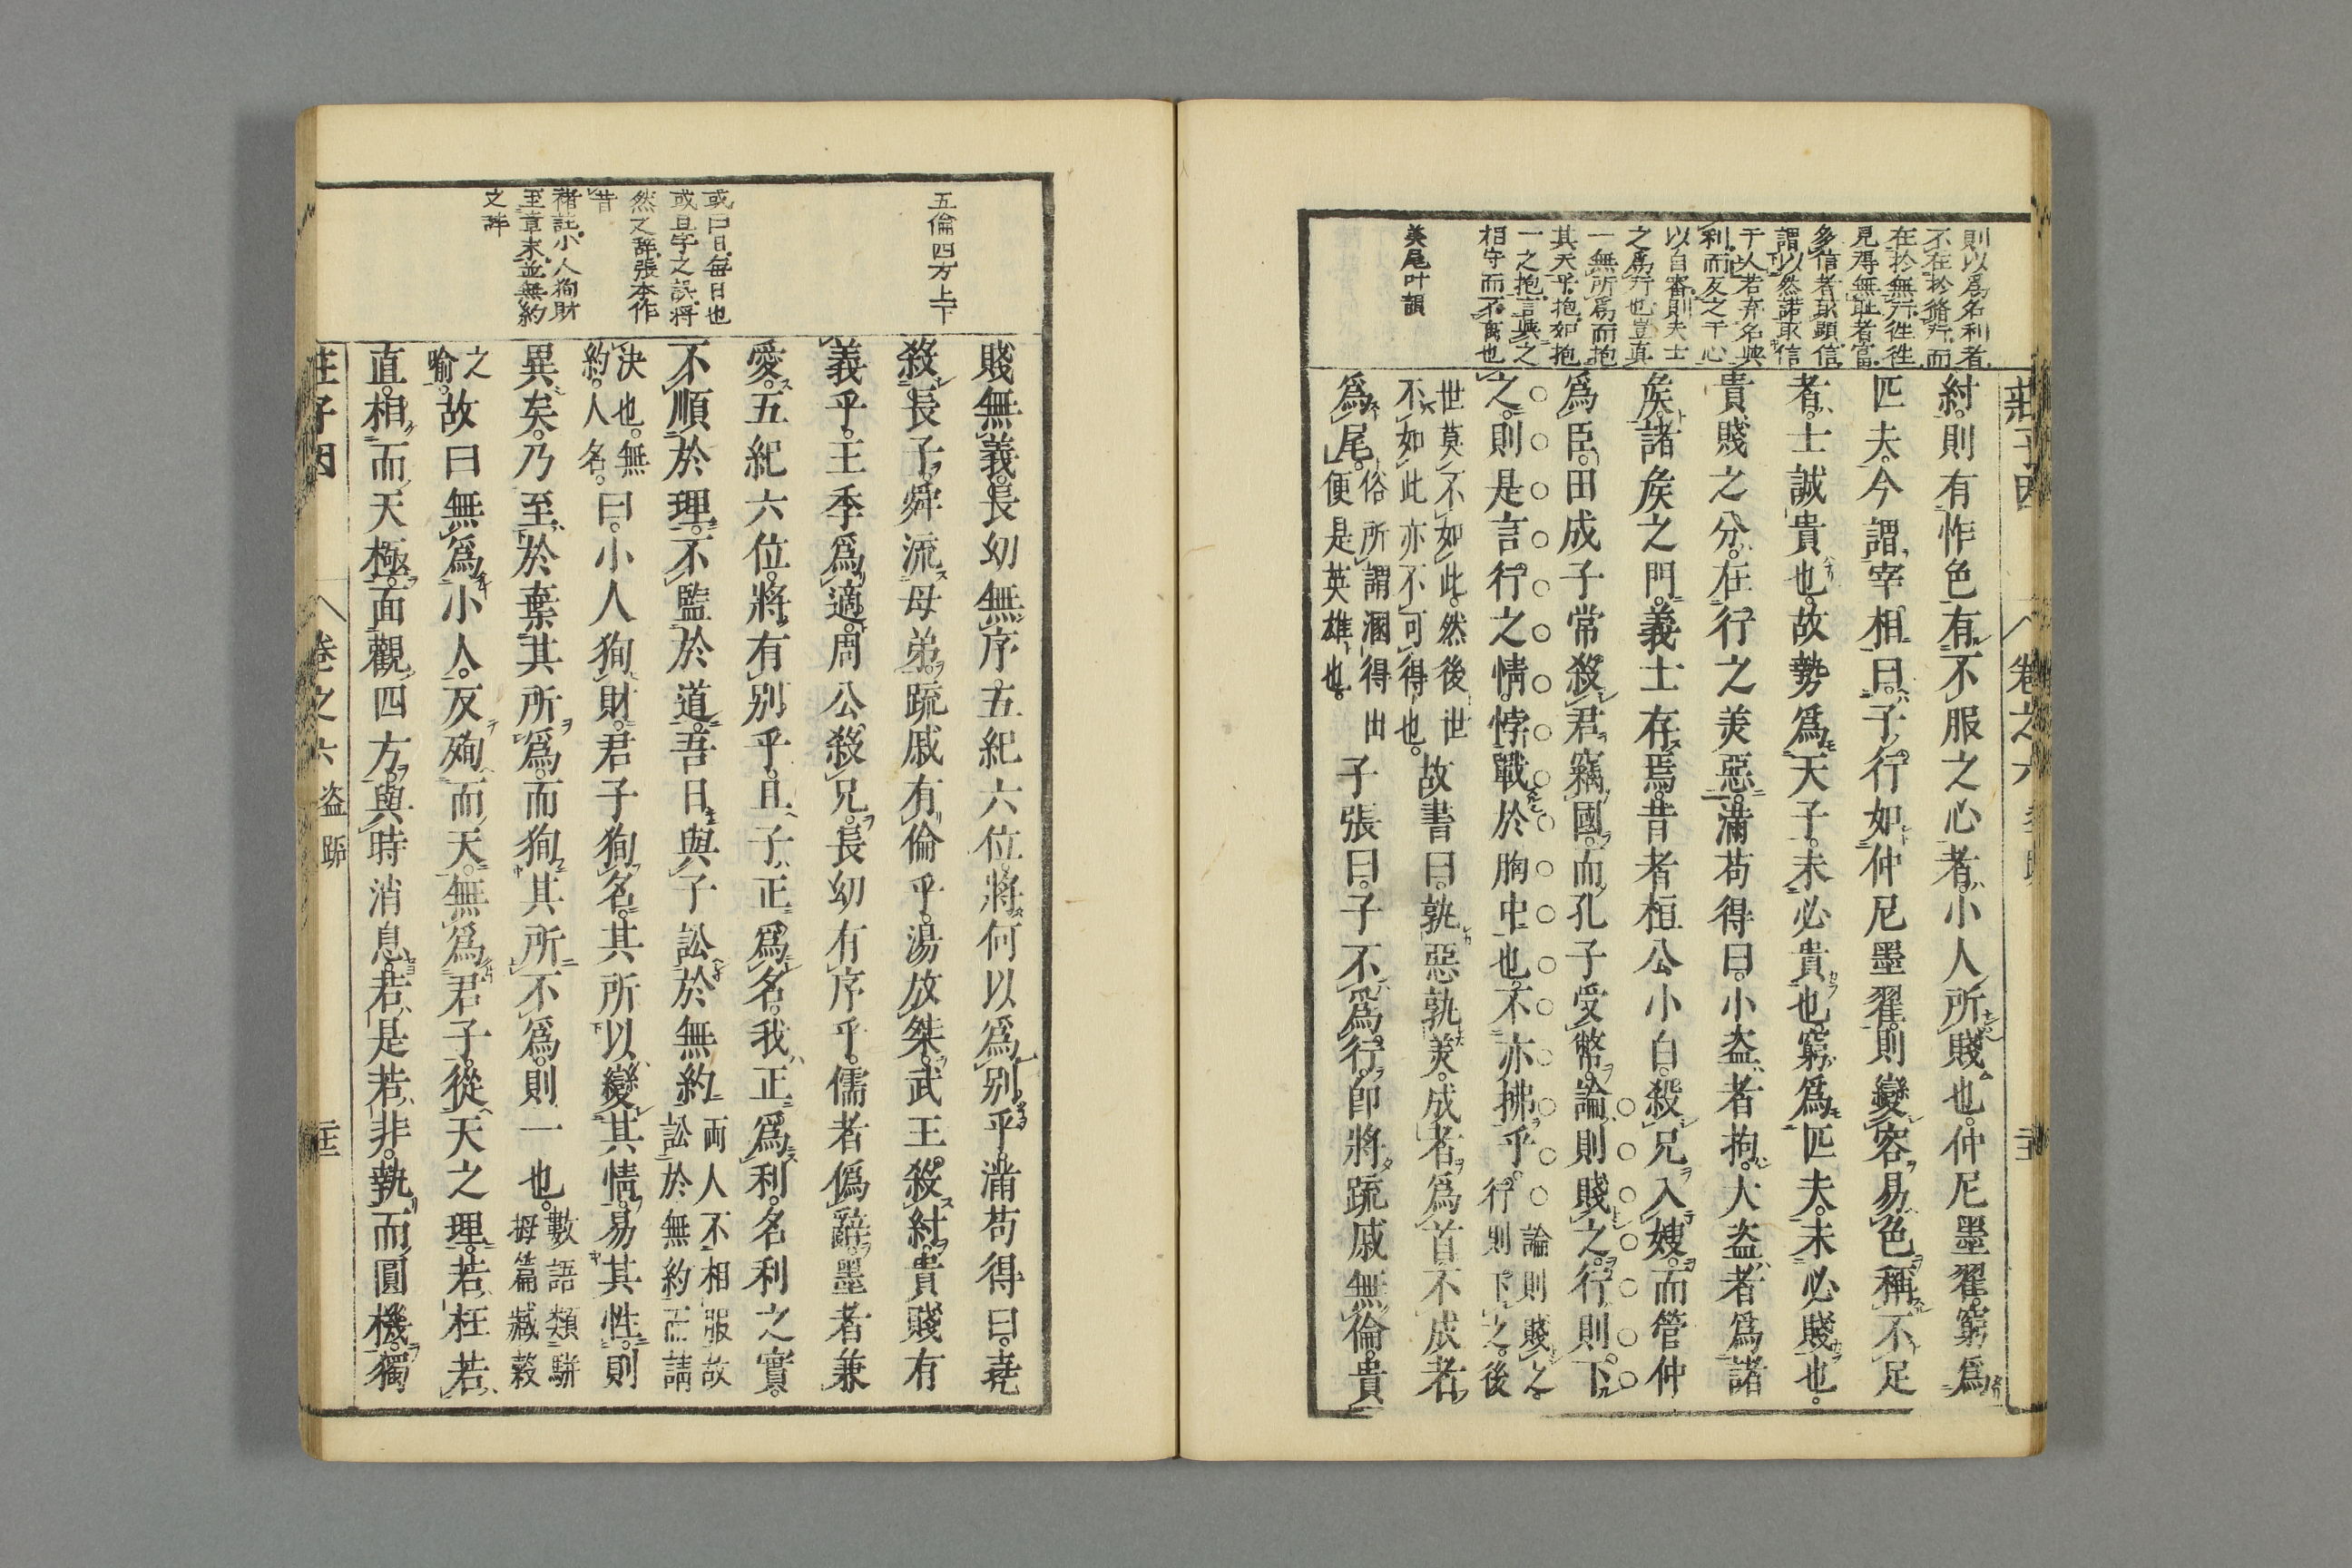 則以爲名利者
不在於脩行而
在於無行徃徃
見得無耻者富
多信者顕信
謂以然諾取信
于人若弃名與
利而反之于心
以自審則夫士
之爲行也豈真
一無所爲而抱
其天乎抱如抱
一之抱言與之
相守而不离也
美尾叶韻
紂則有怍色有不服之心者小人所賤也仲尼墨翟窮爲
匹夫今謂宰相曰子行如仲尼墨翟則變容易色稱不足
者士誠貴也故勢爲天子未必貴也窮爲匹夫未必賤也
貴賤之分在行之美惡滿苟得曰小盗者拘大盗者爲諸
矦諸矦之門義士存焉昔者桓公小白殺兄入嫂而管仲
爲臣田成子常殺君竊國而孔子受幣論則賤之行則下
之則是言行之情悖戰於胸中也不亦拂乎 論則賤之行則下之後
世莫不如此然後世不如此亦不可得也 故書曰孰惡孰美成者爲首不成者
爲尾 俗所謂溷得出便是英雄也 子張曰子不爲行卽將疏戚無倫貴
莊子因 卷之六
五倫四方上下
或曰日每日也
或旦字之誤將
然之辞張本作
昔
褚註小人徇財
至章末並無約
之辞
賤無義長幼無序五紀六位將何以爲别乎滿苟得曰堯
殺長子舜流母弟疏戚有倫乎湯放桀武王殺紂貴賤有
義乎王季爲適周公殺兄長幼有序乎儒者僞辭墨者兼
愛五紀六位將有别乎且子正爲名我正爲利名利之實
不順於理不監於道吾日與子訟於無約 両人不相服故訟於無約正請
決也無約人名 曰小人徇財君子徇名其所以變其情易其性則
異矣乃至於棄其所爲而徇其所不爲則一也 數語類駢拇篇臧穀
之喻 故曰無爲小人反殉而天無爲君子從天之理若枉若
直相而天極面觀四方與時消息若是若非執而圓機獨
莊子因 卷之六 盗跖